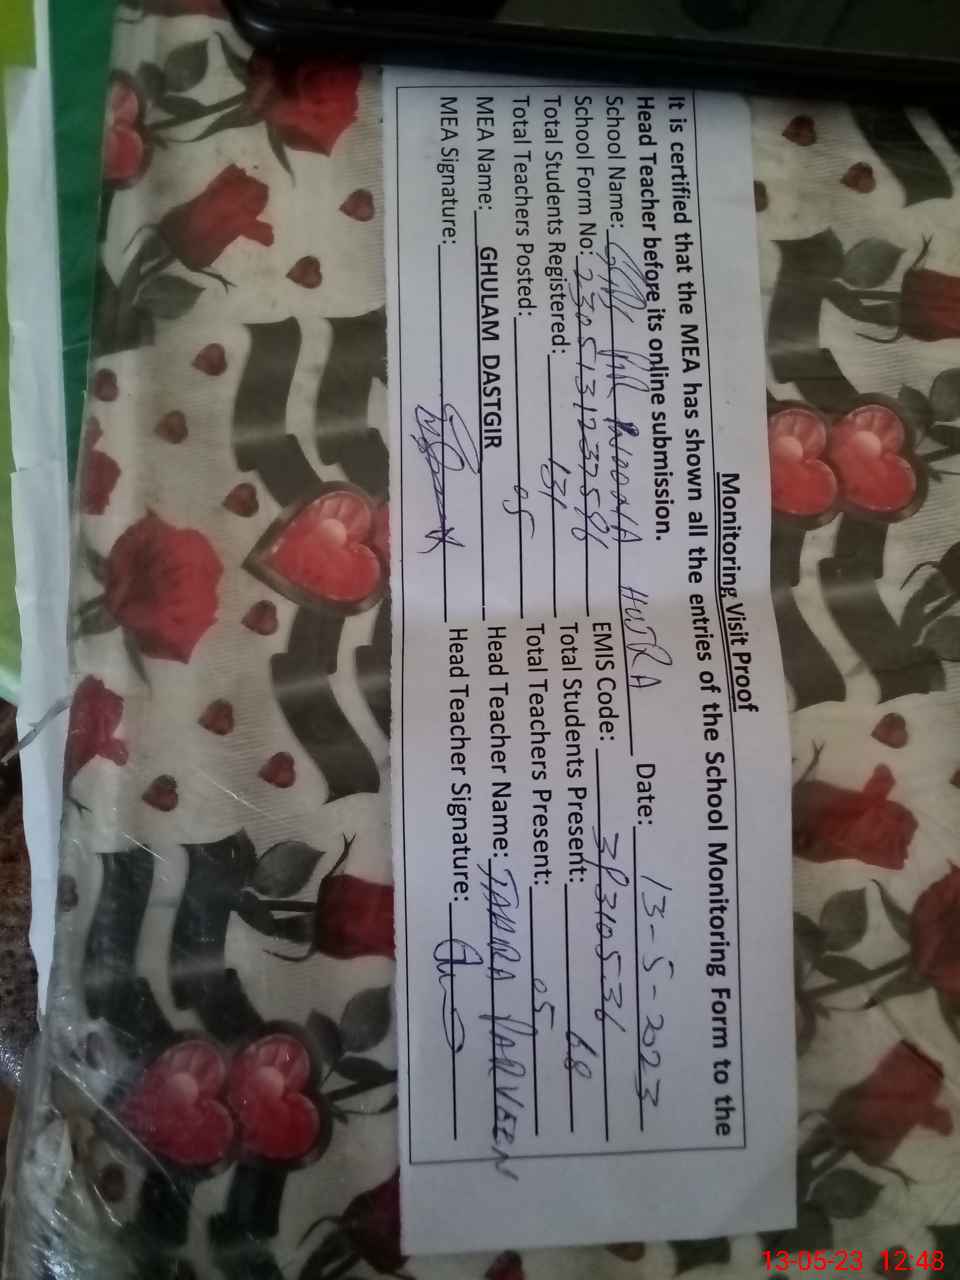 Monitoring Visit Proof
It is certified that the MEA has shown all the entries of the School Monitoring Form to the
Head Teacher before its online submission.
School Name: HUJRA Date: 13-5-2023
School Form No: EMIS Code:
Total Students Registered: 131 Total Students Present: 68
Total Teachers Posted: 05 Total Teachers Present: 05
MEA Name: GHULAM DASTGIR Head Teacher Name: TAHIRA PARVEEN
MEA Signature: Head Teacher Signature:
13-05-23 12:48